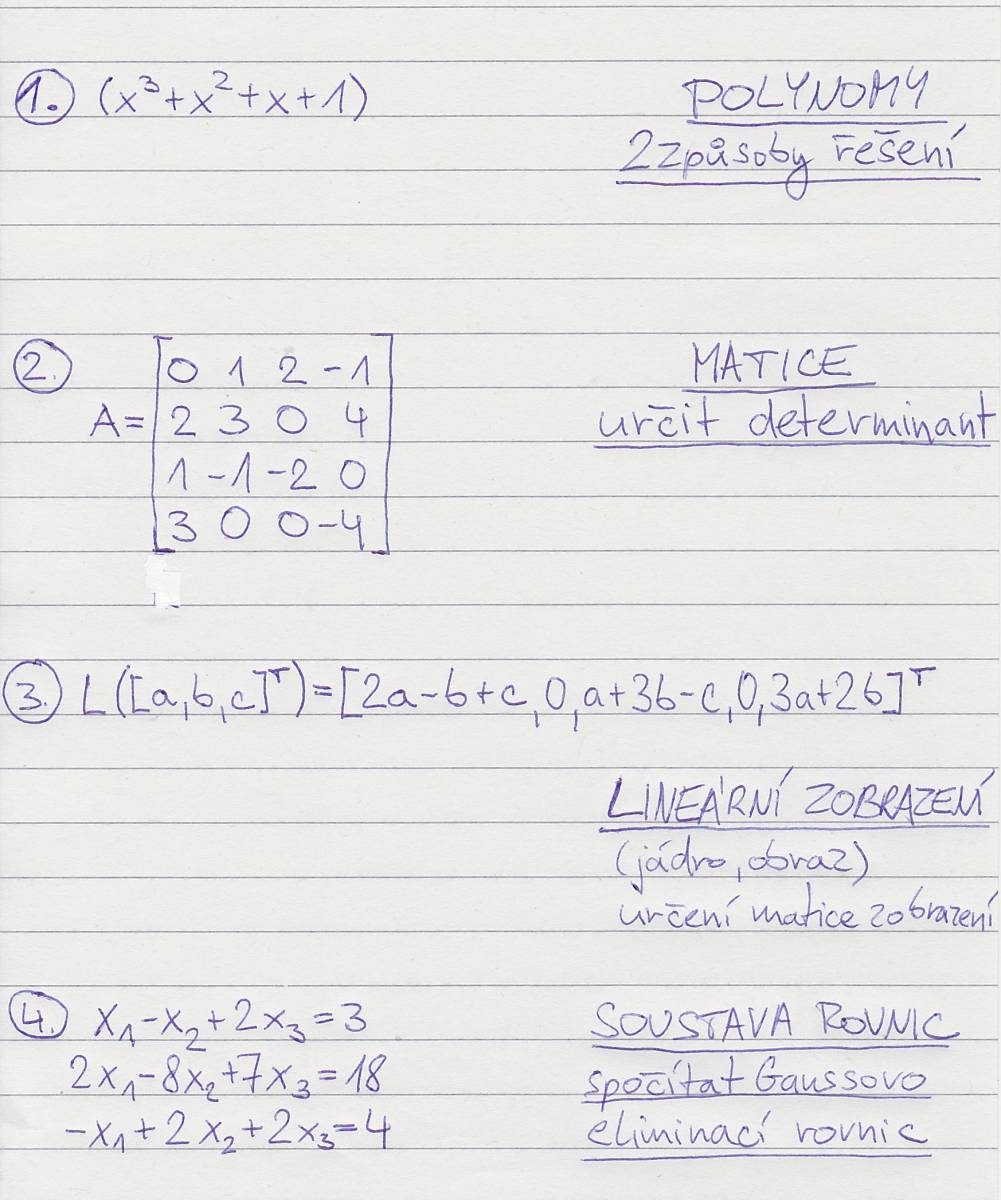 1. (x³+x²+x+1)
POLYNOMY
2 způsoby řešení
2.
A=
0 1 2 -1
2 3 0 4
1 -1 -2 0
3 0 0 -4
MATICE
určit determinant
3. L([a,b,c]ᵀ)=[2a-b+c,0,a+3b-c,0,3a+2b]ᵀ
LINEÁRNÍ ZOBRAZENÍ
(jádro, obraz)
určení matice zobrazení
4. x₁-x₂+2x₃=3
2x₁-8x₂+7x₃=18
-x₁+2x₂+2x₃=4
SOUSTAVA ROVNIC
spočítat Gaussovo
eliminací rovnic